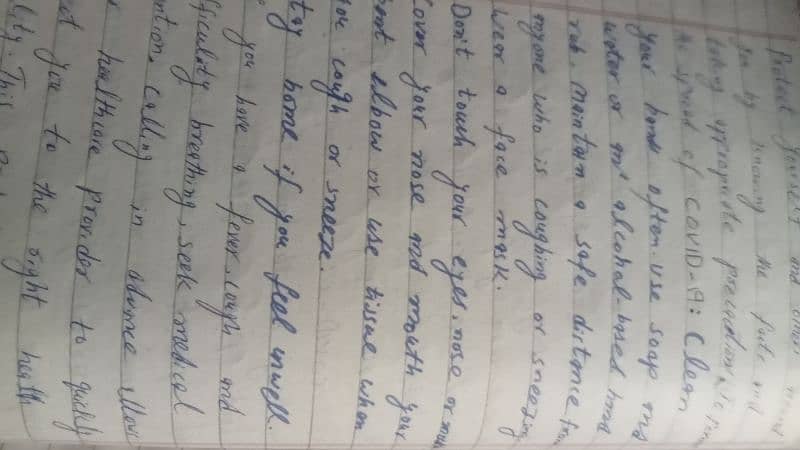 Protect yourself and others around
you by knowing the facts and
taking appropriate precautions
spread of COVID-19: Clean
your hand often. use soap and
water or an alcohal-based hand
rub. Maintain a safe distance from
anyone who is coughing or sneezing
Wear a face mask.
Don't touch your eyes, nose or
cover your nose and mouth your
elbow or use tissue when
you cough or sneeze.
stay home if you feel unwell.
you have a fever, cough and
difficulity breathing, seek medical
calling in advance Allow
healthcare provider to quickly
you to the right health
This